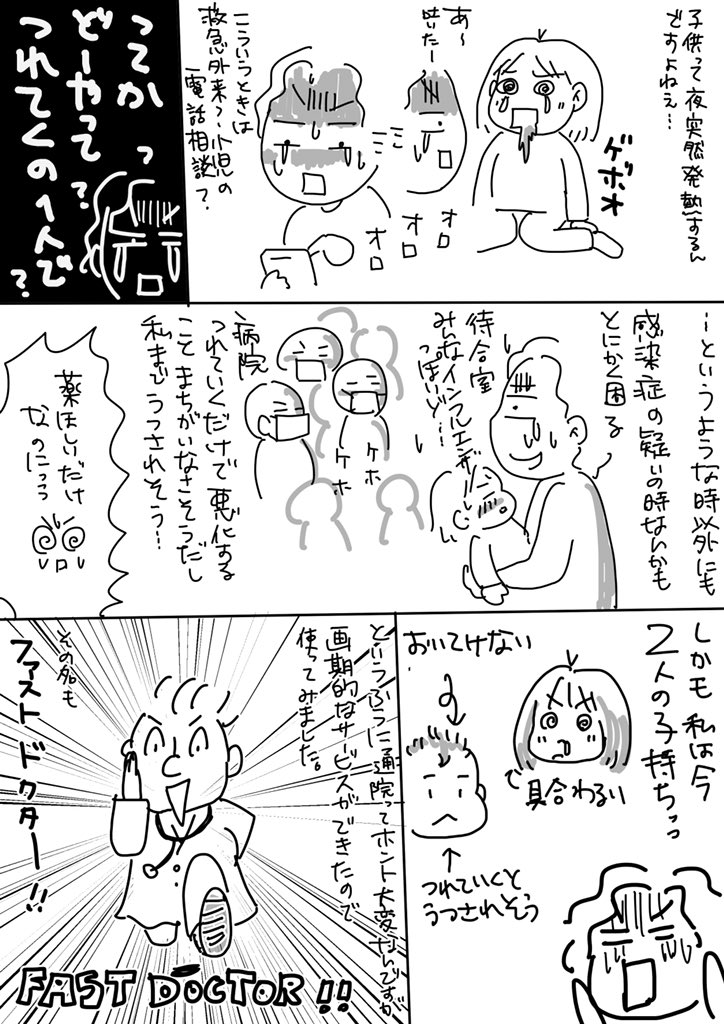 子供って夜突然発熱するん
ですよねぇ…
ゲボォ
あ〜
吐いたー
オロ
オロ
オロ
こういうときは
救急外来?小児の
電話相談?
ってかっ
どーやって?
つれてくの1人で?
…というような時以外にも
感染症の疑いの時なんかも
とにかく困る
待合室
みんなインフルエンザ
っぽいぞ…
ケホ
ケホ
病院
つれていくだけで悪化する
ことまちがいなさそうだし
私までうつされそう…
薬ほしいだけ
なのにっっ
しかも私は今
2人の子持ちっっ
具合わるい
おいてけない
つれていくと
うつされそう
というふうに通院ってホント大変なんですが
画期的なサービスができたので
使ってみました。
その名も
ファストドクター!!
FAST DOCTOR!!